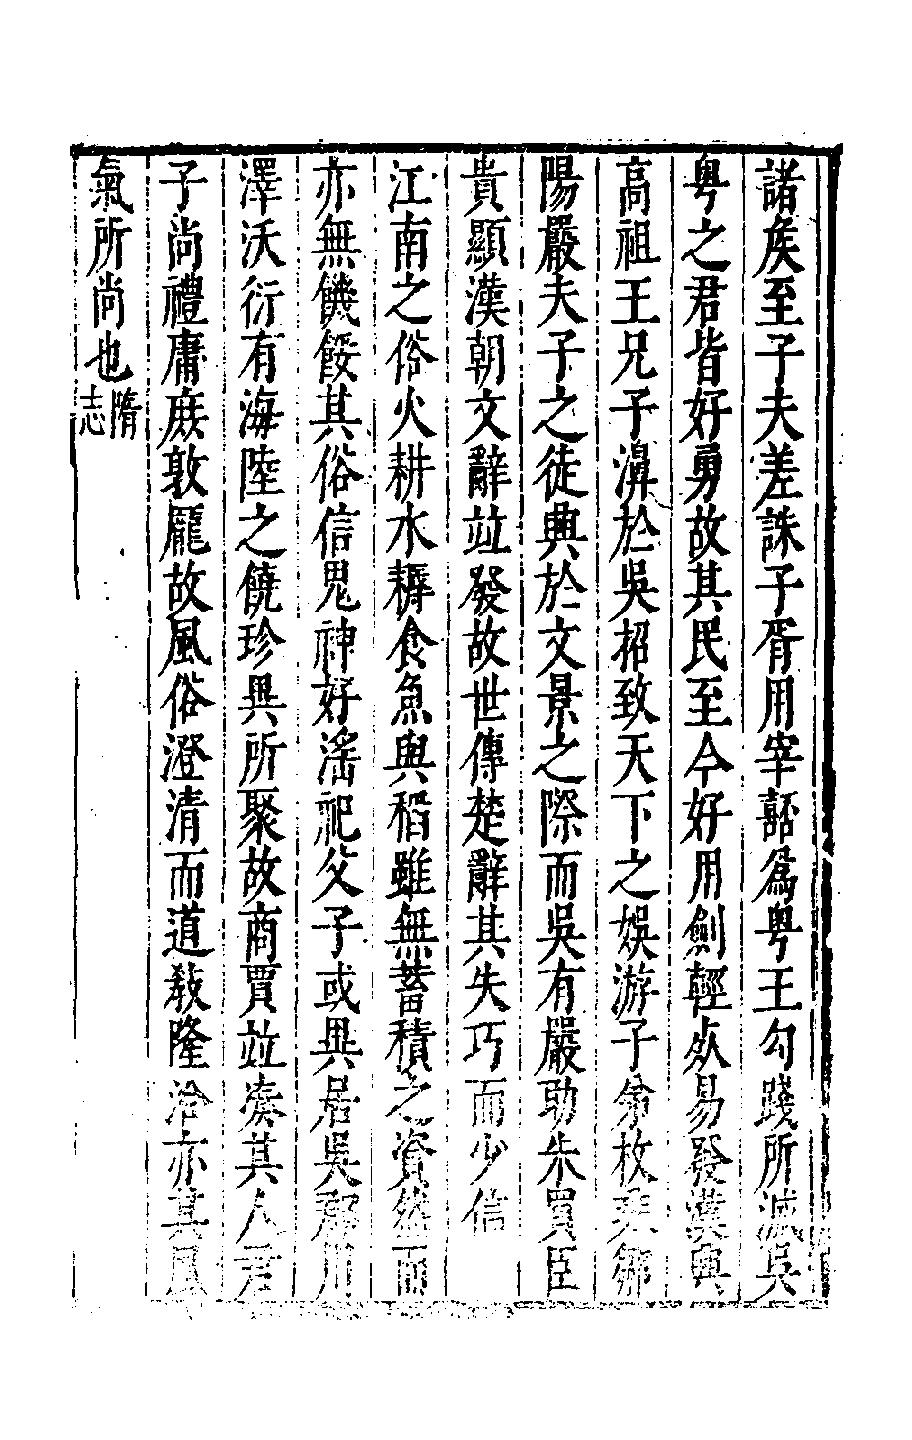 諸矦至子夫差誅子胥用宰嚭爲粤王勾踐所滅吳
粤之君皆好勇故其民至今好用劍輕死易發漢興
高祖王兄子濞於吳招致天下之娛游子弟枚乘鄒
陽嚴夫子之徒興於文景之際而吳有嚴助朱買臣
貴顯漢朝文辭竝發故世傳楚辭其失巧而少信
江南之俗火耕水耨食魚與稻雖無蓄積之資然而
亦無饑餒其俗信鬼神好淫祀父子或異居吳郡川
澤沃衍有海陸之饒珍異所聚故商賈竝湊其人君
子尚禮庸庶敦龐故風俗澄清而道敎隆洽亦其風
氣所尚也隋志